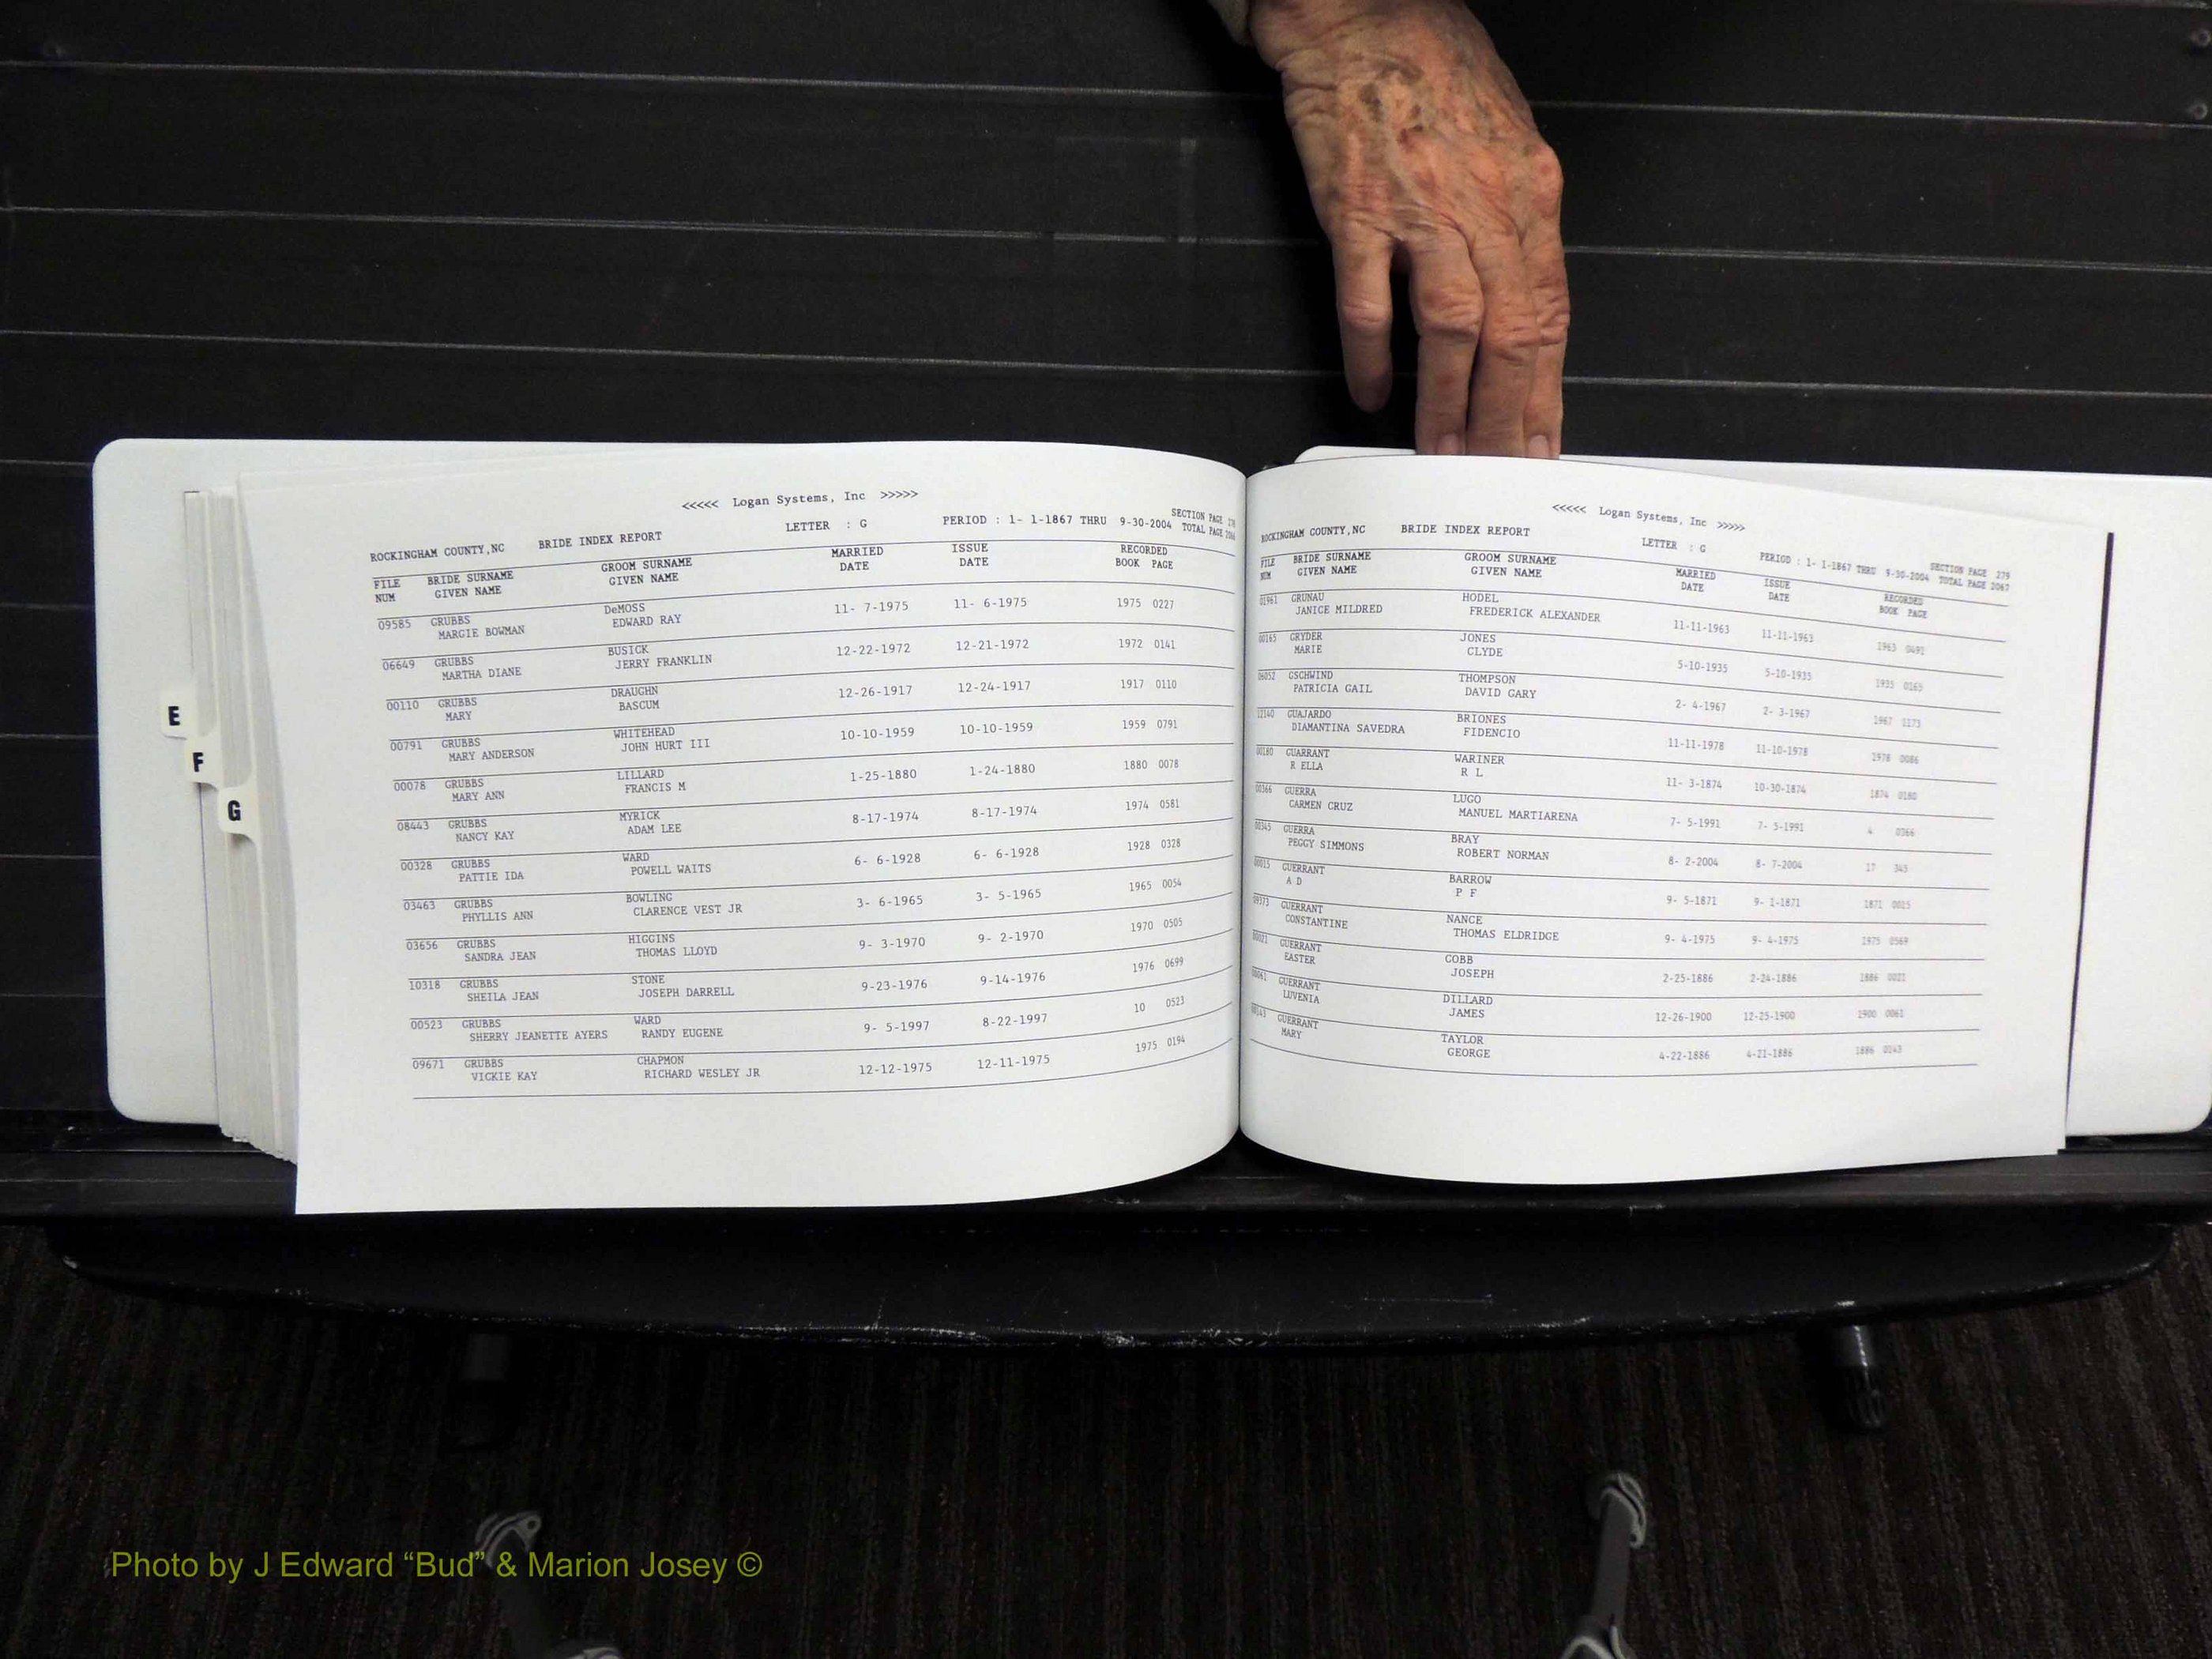 <<<<< Logan Systems, Inc >>>>>
ROCKINGHAM COUNTY,NC BRIDE INDEX REPORT LETTER : G PERIOD : 1- 1-1867 THRU 9-30-2004 SECTION PAGE
TOTAL PAGE
FILE BRIDE SURNAME GROOM SURNAME MARRIED ISSUE RECORDED
NUM GIVEN NAME GIVEN NAME DATE DATE BOOK PAGE
09585 GRUBBS DeMOSS 11- 7-1975 11- 6-1975 1975 0227
MARGIE BOWMAN EDWARD RAY
06649 GRUBBS BUSICK 12-22-1972 12-21-1972 1972 0141
MARTHA DIANE JERRY FRANKLIN
00110 GRUBBS DRAUGHN 12-26-1917 12-24-1917 1917 0110
MARY BASCUM
00791 GRUBBS WHITEHEAD 10-10-1959 10-10-1959 1959 0791
MARY ANDERSON JOHN HURT III
00078 GRUBBS LILLARD 1-25-1880 1-24-1880 1880 0078
MARY ANN FRANCIS M
08443 GRUBBS MYRICK 8-17-1974 8-17-1974 1974 0581
NANCY KAY ADAM LEE
00328 GRUBBS WARD 6- 6-1928 6- 6-1928 1928 0328
PATTIE IDA POWELL WAITS
03463 GRUBBS BOWLING 3- 6-1965 3- 5-1965 1965 0054
PHYLLIS ANN CLARENCE VEST JR
03656 GRUBBS HIGGINS 9- 3-1970 9- 2-1970 1970 0505
SANDRA JEAN THOMAS LLOYD
10318 GRUBBS STONE 9-23-1976 9-14-1976 1976 0699
SHEILA JEAN JOSEPH DARRELL
00523 GRUBBS WARD 9- 5-1997 8-22-1997 10 0523
SHERRY JEANETTE AYERS RANDY EUGENE
09671 GRUBBS CHAPMON 12-12-1975 12-11-1975 1975 0194
VICKIE KAY RICHARD WESLEY JR
E
F
G
<<<<< Logan Systems, Inc >>>>>
ROCKINGHAM COUNTY,NC BRIDE INDEX REPORT LETTER : G PERIOD : 1- 1-1867 THRU 9-30-2004 SECTION PAGE 279
TOTAL PAGE 2067
FILE BRIDE SURNAME GROOM SURNAME MARRIED ISSUE RECORDED
NUM GIVEN NAME GIVEN NAME DATE DATE BOOK PAGE
01961 GRUNAU HODEL 11-11-1963 11-11-1963 1963 0492
JANICE MILDRED FREDERICK ALEXANDER
00165 GRYDER JONES 5-10-1935 5-10-1935 1935 0165
MARIE CLYDE
06052 GSCHWIND THOMPSON 2- 4-1967 2- 3-1967 1967 0173
PATRICIA GAIL DAVID GARY
12140 GUAJARDO BRIONES 11-11-1978 11-10-1978 1978 0086
DIAMANTINA SAVEDRA FIDENCIO
00180 GUARRANT WARINER 11- 3-1874 10-30-1874 1874 0180
R ELLA R L
00366 GUERRA LUGO 7- 5-1991 7- 5-1991 4 0366
CARMEN CRUZ MANUEL MARTIARENA
00345 GUERRA BRAY 8- 2-2004 8- 7-2004 17 345
PEGGY SIMMONS ROBERT NORMAN
00015 GUERRANT BARROW 9- 5-1871 9- 1-1871 1871 0015
A D P F
09373 GUERRANT NANCE 9- 4-1975 9- 4-1975 1975 0569
CONSTANTINE THOMAS ELDRIDGE
00021 GUERRANT COBB 2-25-1886 2-24-1886 1886 0021
EASTER JOSEPH
00061 GUERRANT DILLARD 12-26-1900 12-25-1900 1900 0061
LUVENIA JAMES
00143 GUERRANT TAYLOR 4-22-1886 4-21-1886 1886 0143
MARY GEORGE
Photo by J Edward “Bud” & Marion Josey ©